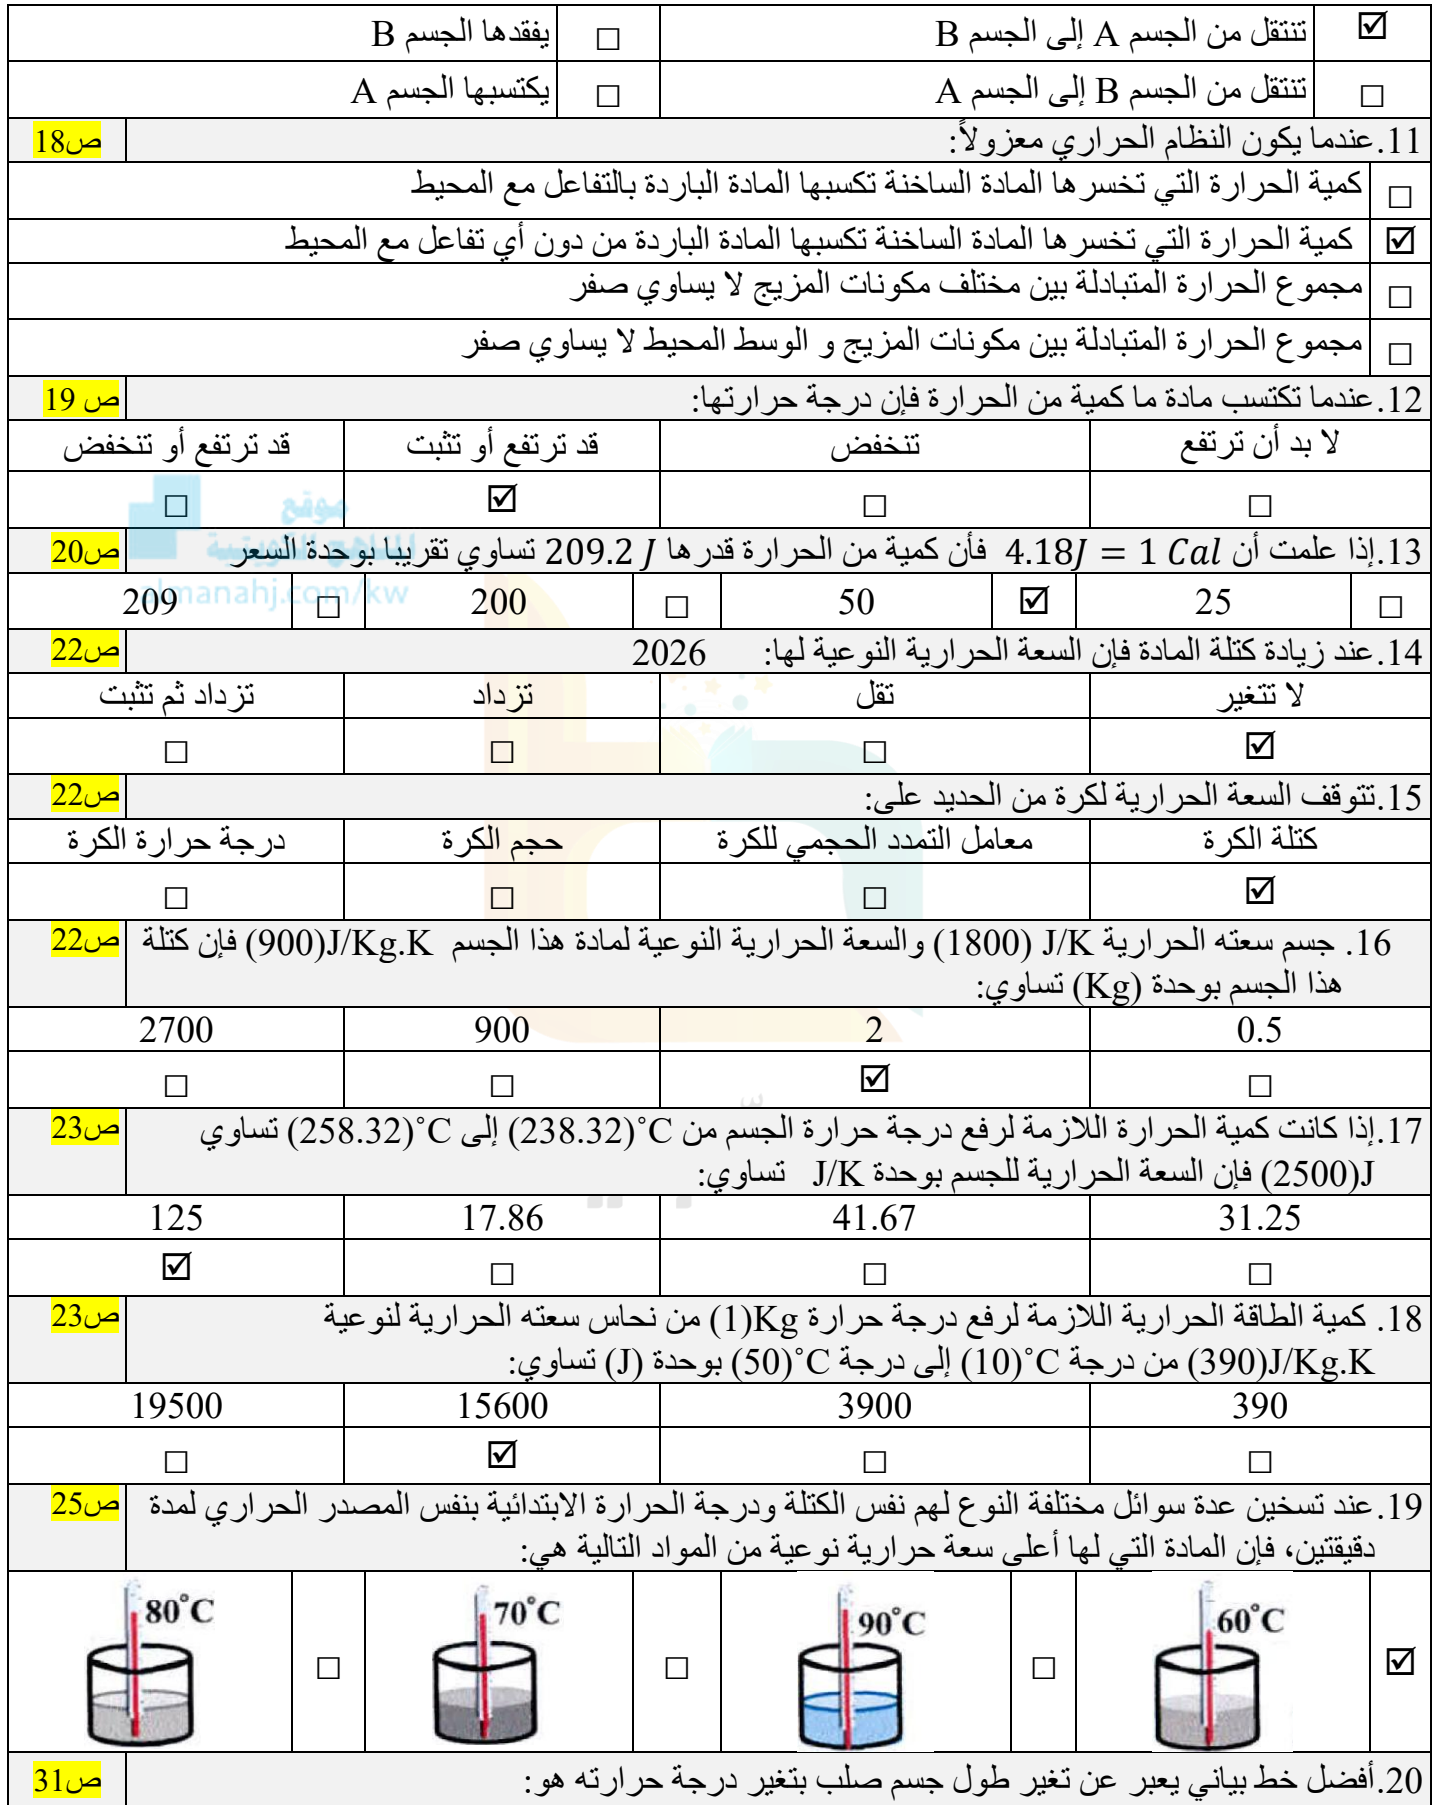 ☑ تنتقل من الجسم A إلى الجسم B □ يفقدها الجسم B
□ تنتقل من الجسم B إلى الجسم A □ يكتسبها الجسم A
11.عندما يكون النظام الحراري معزولاً: ص18
□ كمية الحرارة التي تخسرها المادة الساخنة تكسبها المادة الباردة بالتفاعل مع المحيط
☑ كمية الحرارة التي تخسرها المادة الساخنة تكسبها المادة الباردة من دون أي تفاعل مع المحيط
□ مجموع الحرارة المتبادلة بين مختلف مكونات المزيج لا يساوي صفر
□ مجموع الحرارة المتبادلة بين مكونات المزيج و الوسط المحيط لا يساوي صفر
12.عندما تكتسب مادة ما كمية من الحرارة فإن درجة حرارتها: ص 19
لا بد أن ترتفع تنخفض قد ترتفع أو تثبت قد ترتفع أو تنخفض
□ □ ☑ □
موقع
المناهج الكويتية
almanahj.com/kw
13.إذا علمت أن 4.18J = 1 Cal فأن كمية من الحرارة قدرها 209.2 J تساوي تقريبا بوحدة السعر ص20
□ 25 ☑ 50 □ 200 □ 209
14.عند زيادة كتلة المادة فإن السعة الحرارية النوعية لها: 2026 ص22
لا تتغير تقل تزداد تزداد ثم تثبت
☑ □ □ □
15.تتوقف السعة الحرارية لكرة من الحديد على: ص22
كتلة الكرة معامل التمدد الحجمي للكرة حجم الكرة درجة حرارة الكرة
☑ □ □ □
16. جسم سعته الحرارية J/K (1800) والسعة الحرارية النوعية لمادة هذا الجسم (900)J/Kg.K فإن كتلة ص22
هذا الجسم بوحدة (Kg) تساوي:
0.5 2 900 2700
□ ☑ □ □
17.إذا كانت كمية الحرارة اللازمة لرفع درجة حرارة الجسم من (238.32)˚C إلى (258.32)˚C تساوي ص23
(2500)J فإن السعة الحرارية للجسم بوحدة J/K تساوي:
31.25 41.67 17.86 125
□ □ □ ☑
18. كمية الطاقة الحرارية اللازمة لرفع درجة حرارة (1)Kg من نحاس سعته الحرارية لنوعية ص23
(390)J/Kg.K من درجة (10)˚C إلى درجة (50)˚C بوحدة (J) تساوي:
390 3900 15600 19500
□ □ ☑ □
19.عند تسخين عدة سوائل مختلفة النوع لهم نفس الكتلة ودرجة الحرارة الابتدائية بنفس المصدر الحراري لمدة ص25
دقيقتين، فإن المادة التي لها أعلى سعة حرارية نوعية من المواد التالية هي:
☑ 60˚C □ 90˚C □ 70˚C □ 80˚C
20.أفضل خط بياني يعبر عن تغير طول جسم صلب بتغير درجة حرارته هو: ص31